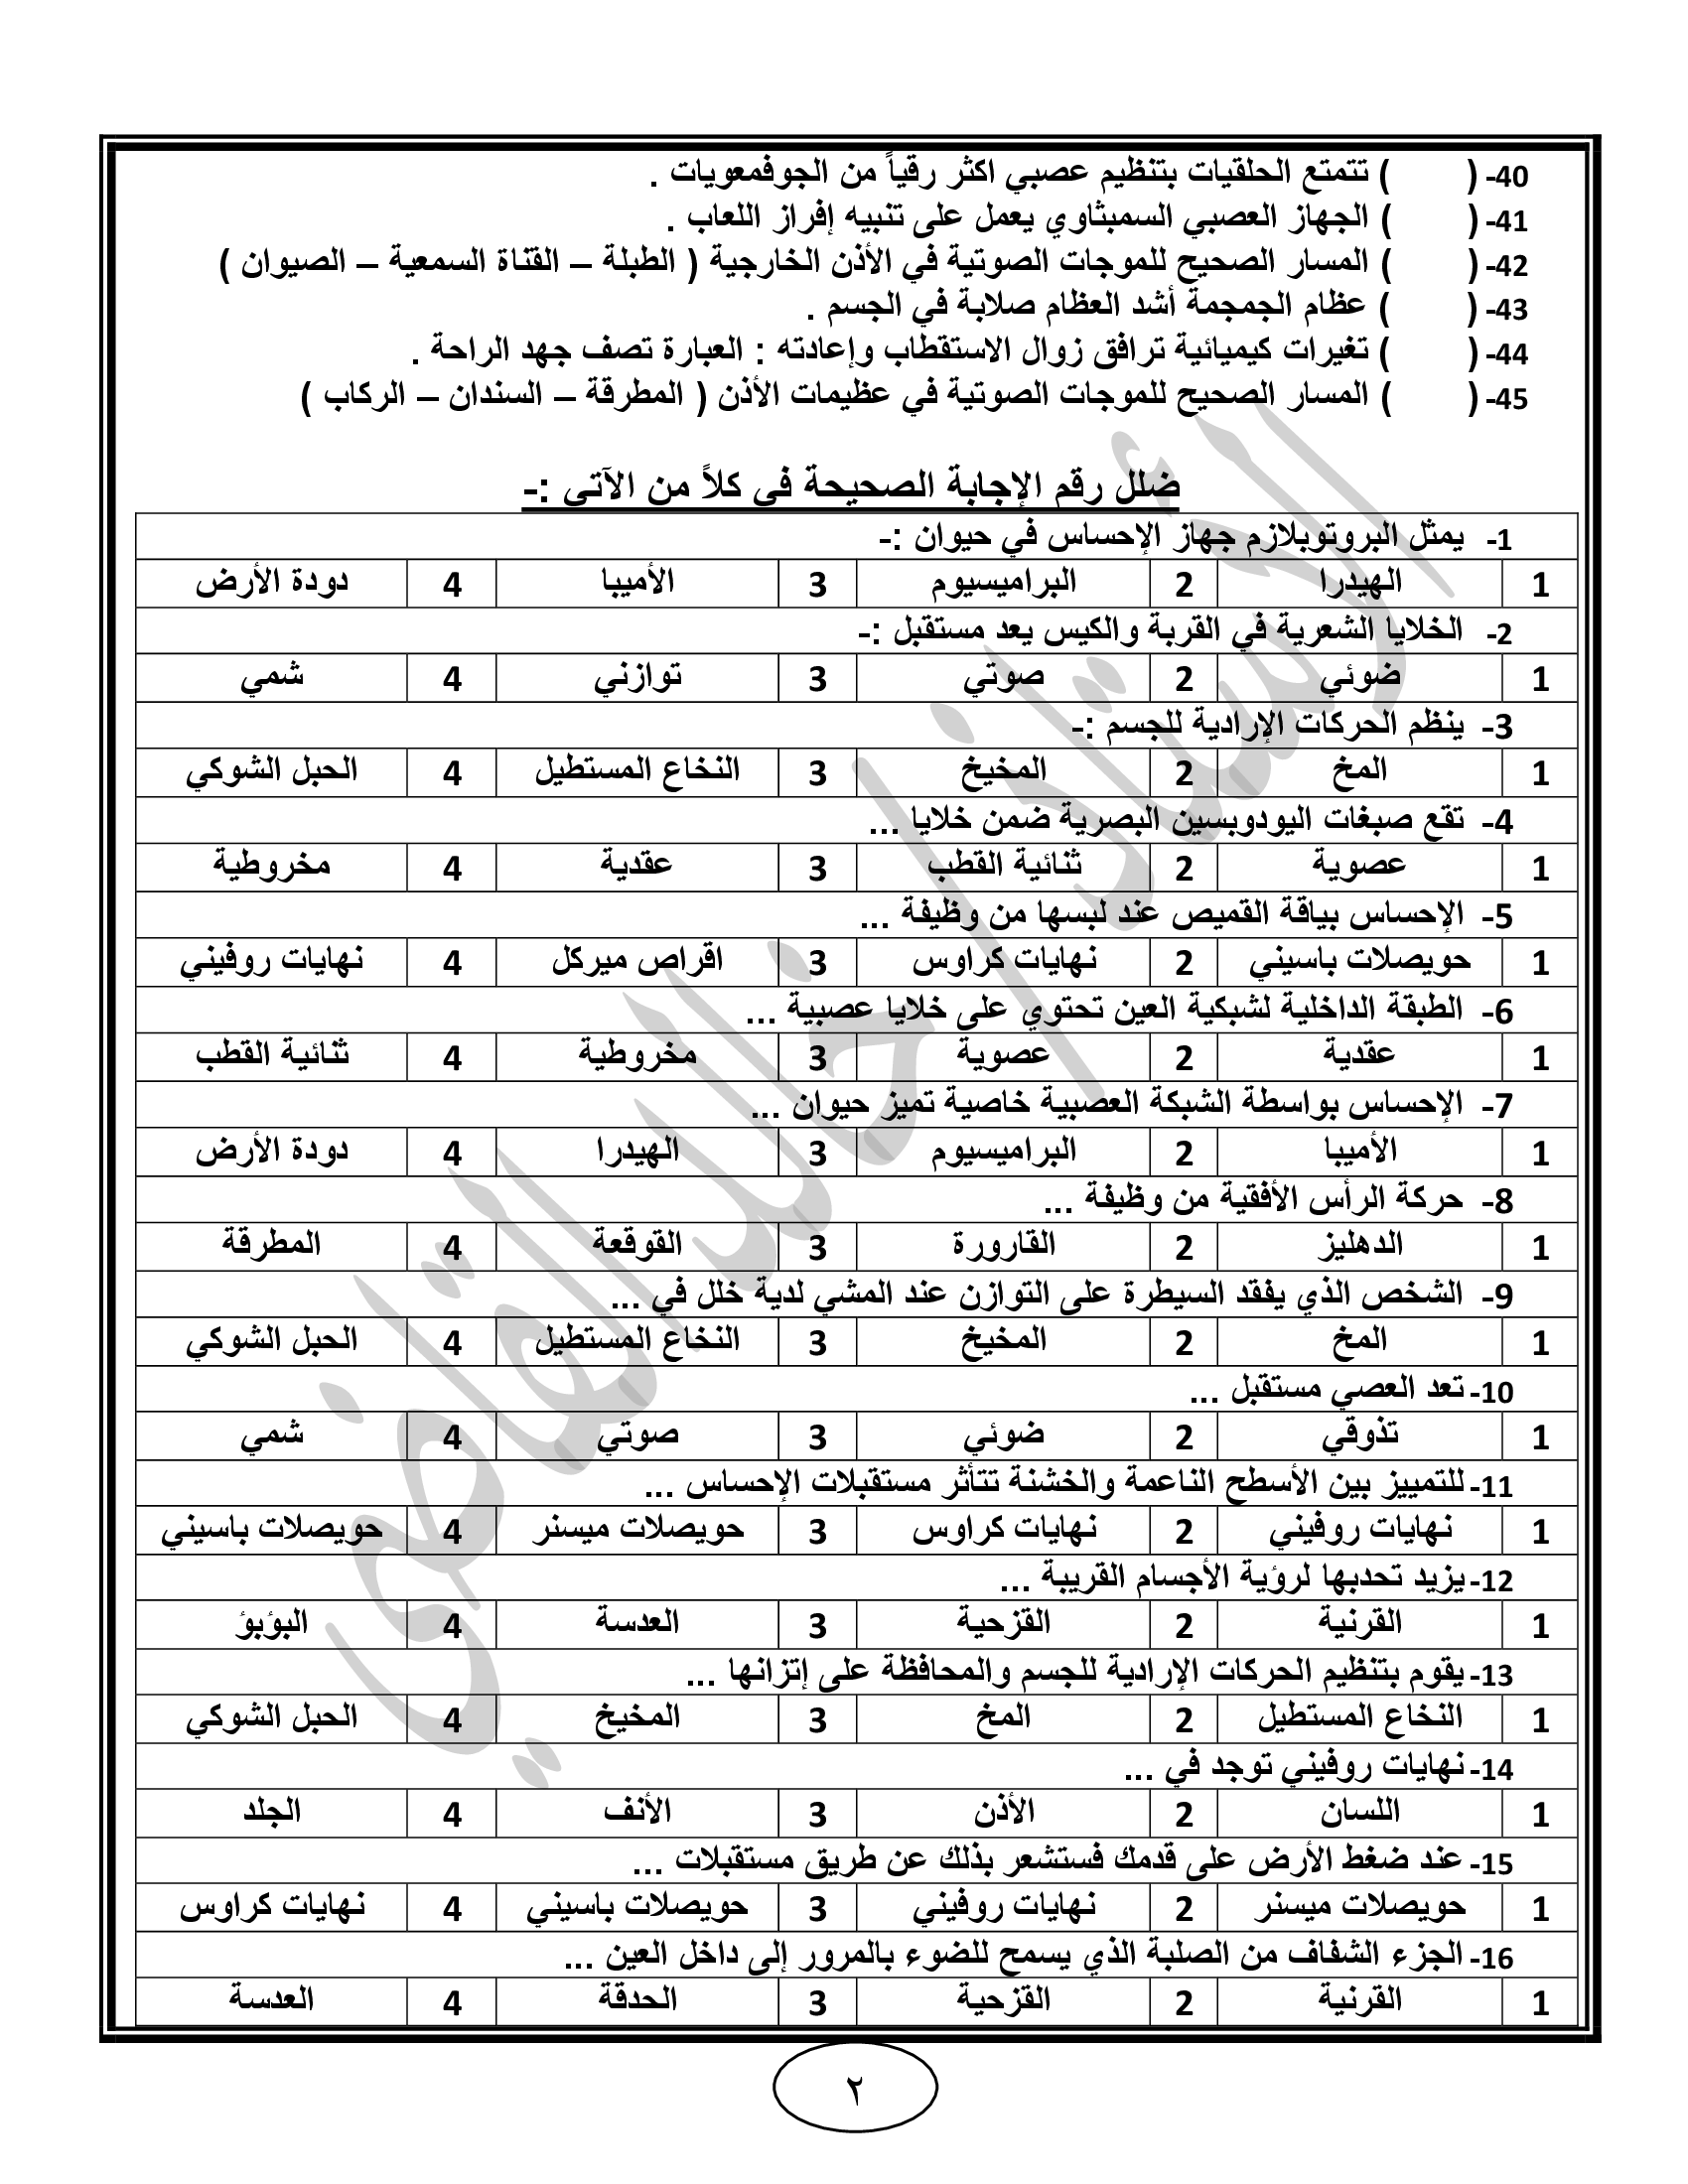 40- ( ) تتمتع الحلقيات بتنظيم عصبي اكثر رقياً من الجوفمعويات .
41- ( ) الجهاز العصبي السمبثاوي يعمل على تنبيه إفراز اللعاب .
42- ( ) المسار الصحيح للموجات الصوتية في الأذن الخارجية ( الطبلة – القناة السمعية – الصيوان )
43- ( ) عظام الجمجمة أشد العظام صلابة في الجسم .
44- ( ) تغيرات كيميائية ترافق زوال الاستقطاب وإعادته : العبارة تصف جهد الراحة .
45- ( ) المسار الصحيح للموجات الصوتية في عظيمات الأذن ( المطرقة – السندان – الركاب )
ضلل رقم الإجابة الصحيحة في كلاً من الآتي :-
1- يمثل البروتوبلازم جهاز الإحساس في حيوان :-
1 الهيدرا 2 البراميسيوم 3 الأميبا 4 دودة الأرض
2- الخلايا الشعرية في القربة والكيس يعد مستقبل :-
1 ضوئي 2 صوتي 3 توازني 4 شمي
3- ينظم الحركات الإرادية للجسم :-
1 المخ 2 المخيخ 3 النخاع المستطيل 4 الحبل الشوكي
4- تقع صبغات اليودوبسين البصرية ضمن خلايا ...
1 عصوية 2 ثنائية القطب 3 عقدية 4 مخروطية
5- الإحساس بياقة القميص عند لبسها من وظيفة ...
1 حويصلات باسيني 2 نهايات كراوس 3 اقراص ميركل 4 نهايات روفيني
6- الطبقة الداخلية لشبكية العين تحتوي على خلايا عصبية ...
1 عقدية 2 عصوية 3 مخروطية 4 ثنائية القطب
7- الإحساس بواسطة الشبكة العصبية خاصية تميز حيوان ...
1 الأميبا 2 البراميسيوم 3 الهيدرا 4 دودة الأرض
8- حركة الرأس الأفقية من وظيفة ...
1 الدهليز 2 القارورة 3 القوقعة 4 المطرقة
9- الشخص الذي يفقد السيطرة على التوازن عند المشي لدية خلل في ...
1 المخ 2 المخيخ 3 النخاع المستطيل 4 الحبل الشوكي
10- تعد العصي مستقبل ...
1 تذوقي 2 ضوئي 3 صوتي 4 شمي
11- للتمييز بين الأسطح الناعمة والخشنة تتأثر مستقبلات الإحساس ...
1 نهايات روفيني 2 نهايات كراوس 3 حويصلات ميسنر 4 حويصلات باسيني
12- يزيد تحدبها لرؤية الأجسام القريبة ...
1 القرنية 2 القزحية 3 العدسة 4 البؤبؤ
13- يقوم بتنظيم الحركات الإرادية للجسم والمحافظة على إتزانها ...
1 النخاع المستطيل 2 المخ 3 المخيخ 4 الحبل الشوكي
14- نهايات روفيني توجد في ...
1 اللسان 2 الأذن 3 الأنف 4 الجلد
15- عند ضغط الأرض على قدمك فستشعر بذلك عن طريق مستقبلات ...
1 حويصلات ميسنر 2 نهايات روفيني 3 حويصلات باسيني 4 نهايات كراوس
16- الجزء الشفاف من الصلبة الذي يسمح للضوء بالمرور إلى داخل العين ...
1 القرنية 2 القزحية 3 الحدقة 4 العدسة
٢
الأستاذ / خالد القاضي